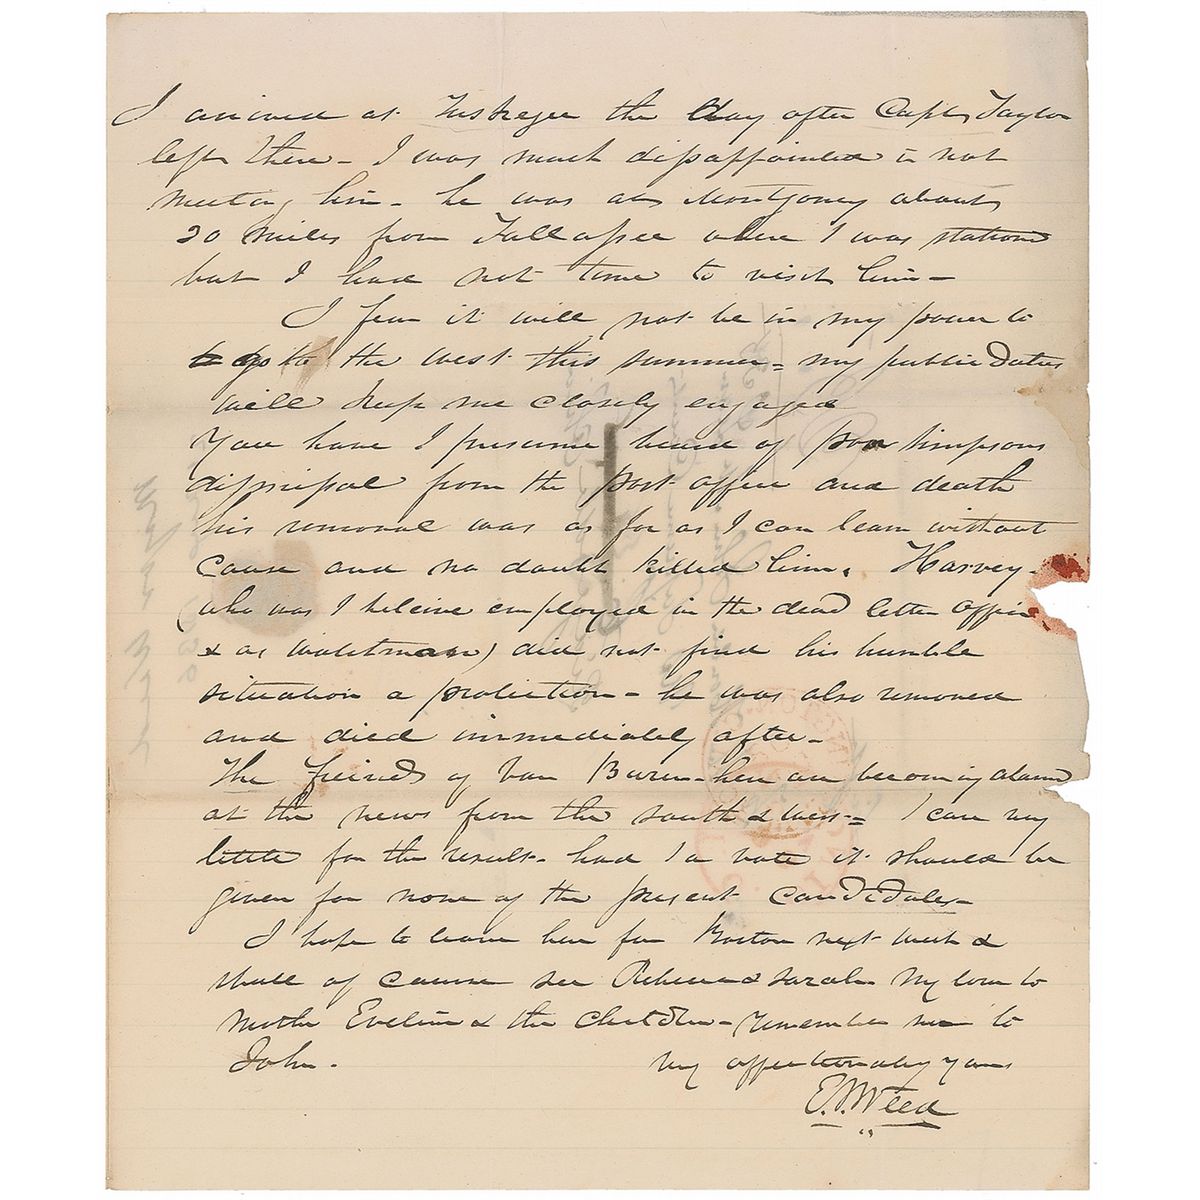 I arrived at Tuskegee the day after Capt Taylor
left there - I was much disappointed in not
meeting him - he was at Montgomery about
20 miles from Tallassee where I was stationed
but I had not time to visit him -
I fear it will not be in my power to
go to the West this summer - my public Duties
will keep me closely engaged
You have I presume heard of poor Simpsons
dismissal from the post office and death
his removal was as far as I can learn without
cause and no doubt killed him. Harvey -
(who was I beleive employed in the dead letter office
& as watchman) did not find his humble
situation a protection - he was also removed
and died immediately after -
The Freinds of Van Buren here are becoming alarmed
at the news from the south & West - I care very
little for the result - had I a vote it should be
given for none of the present candidates -
I hope to leave here for Boston next week &
shall of course see Rebecca & Sarah My love to
Mother Eveline & the children - remember me to
John. Very affectionately yours
E. Weed